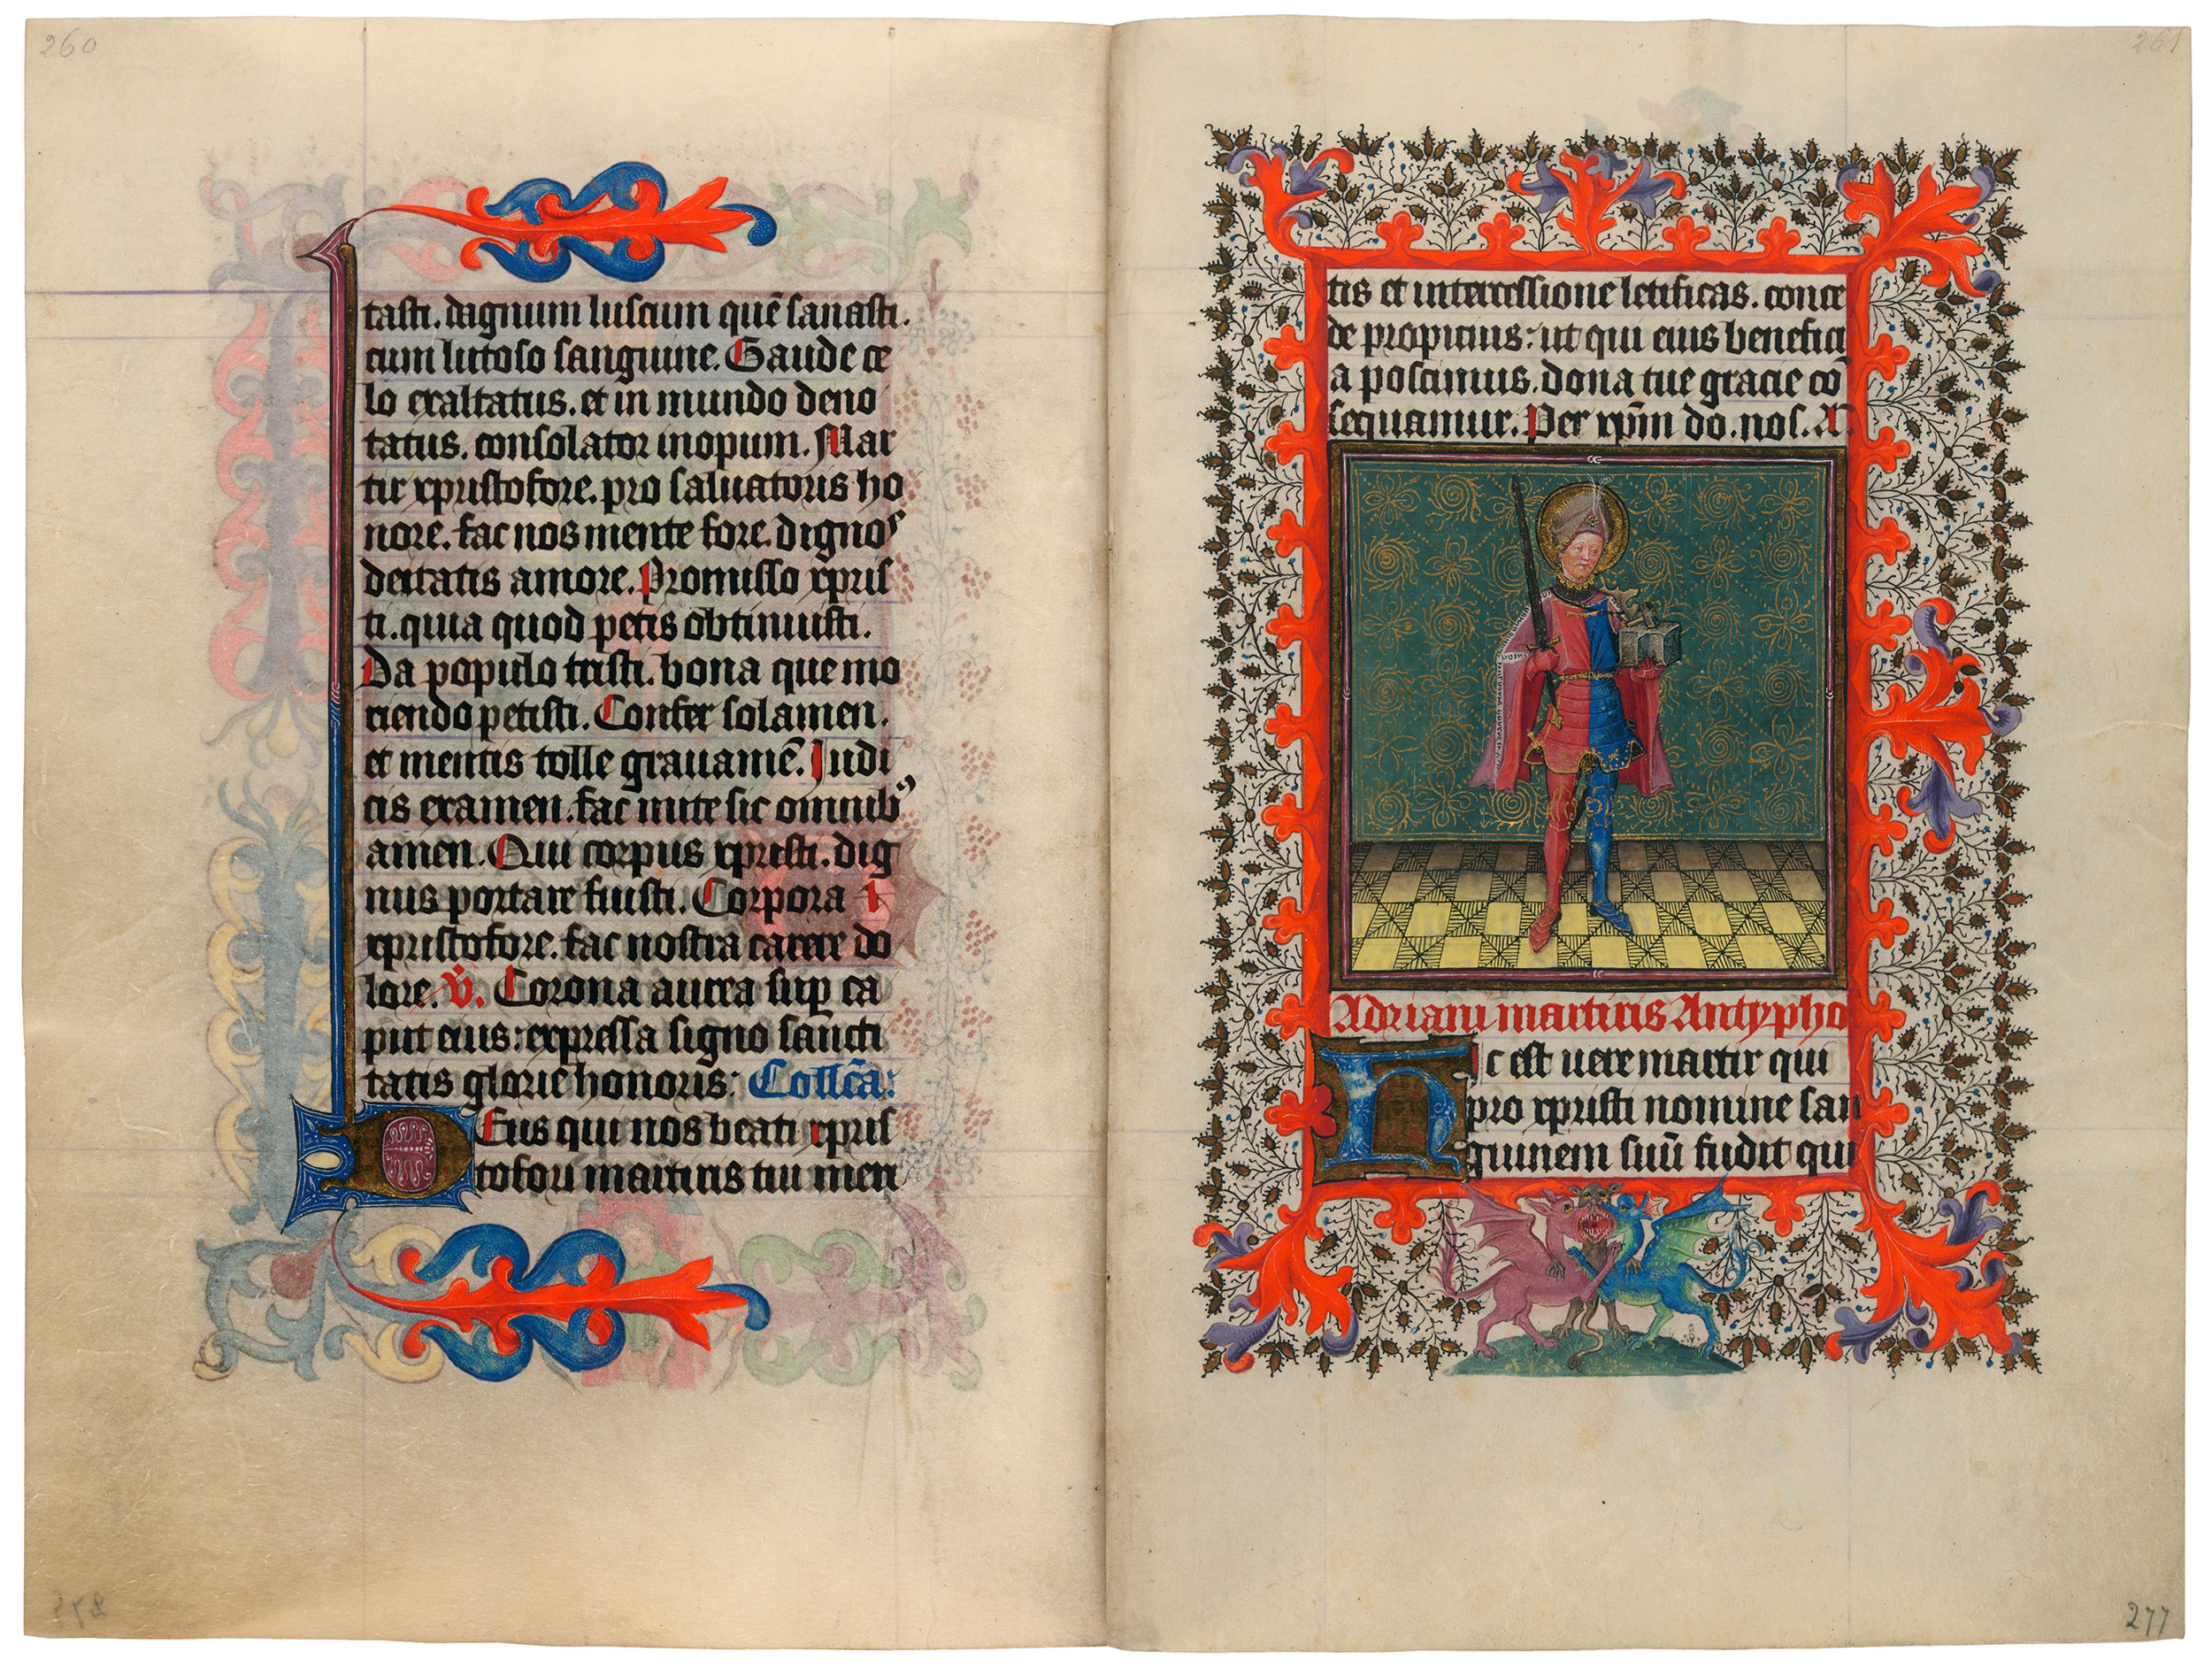 260
tasti. dagnum luscum quē sanasti.
cum lutoso sanguine. Gaude ce
lo exaltatus. et in mundo deno
tatus. consolator inopum. Mar
tir xpristofore. pro saluatoris ho
nore. fac nos mente fore. dignos
deitatis amore. Promisso xpris
ti. quia quod petis obtinuisti.
Da populo tristi. bona que mo
riendo petisti. Confer solamen.
et mentis tolle grauamē. Iudi
cis examen. fac mite sit omnibꝰ
amen. Qui corpus xpristi. dig
nus portare fuisti. Corpora
xpristofore. fac nostra carere do
lore. v̄. Corona aurea sup ca
put eius: expressa signo sancti
tatis glorie honoris: Collc̄a:
Deus qui nos beati xpris
tofori martiris tui meri
261
tis et intercessione letificas. conce
de propicius: ut qui eius benefici
a poscimus. dona tue gracie cō
sequamur. Per xp̄m do. nos. A
Adriani martiris Antypho
Hic est uere martir qui
pro xpristi nomine san
guinem suū fudit qui
277